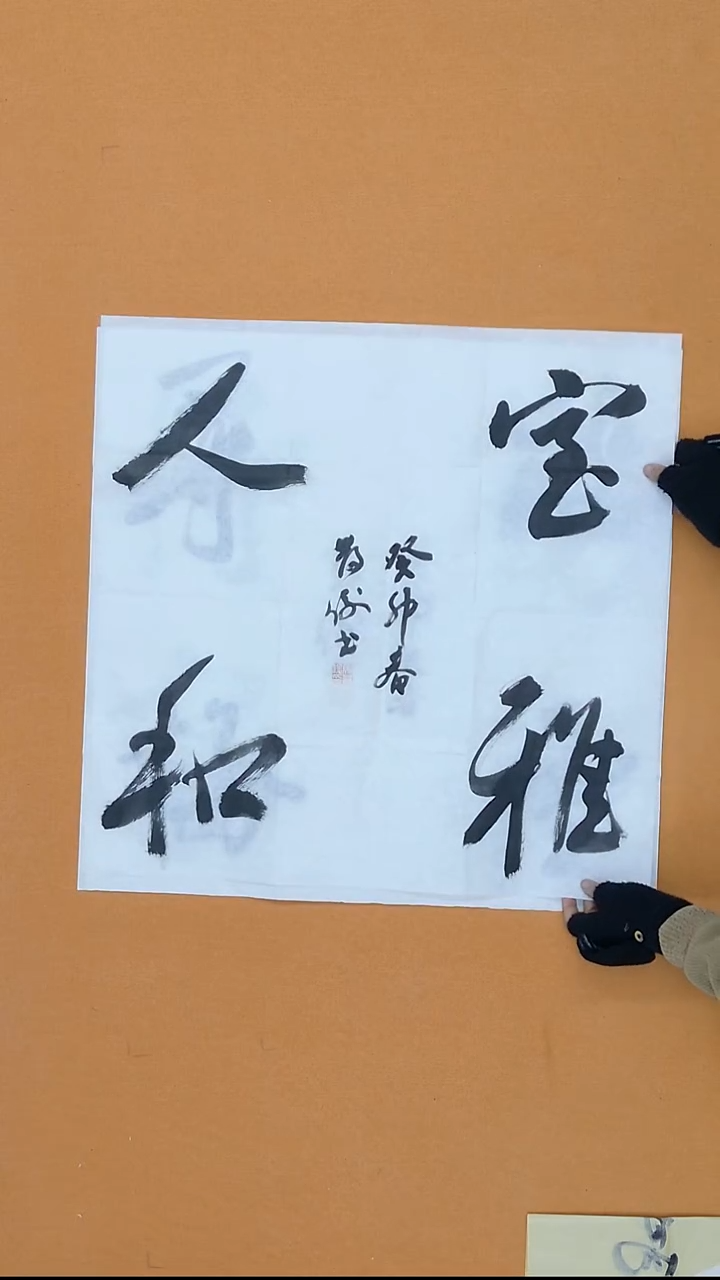 室雅
人和
癸卯春
书